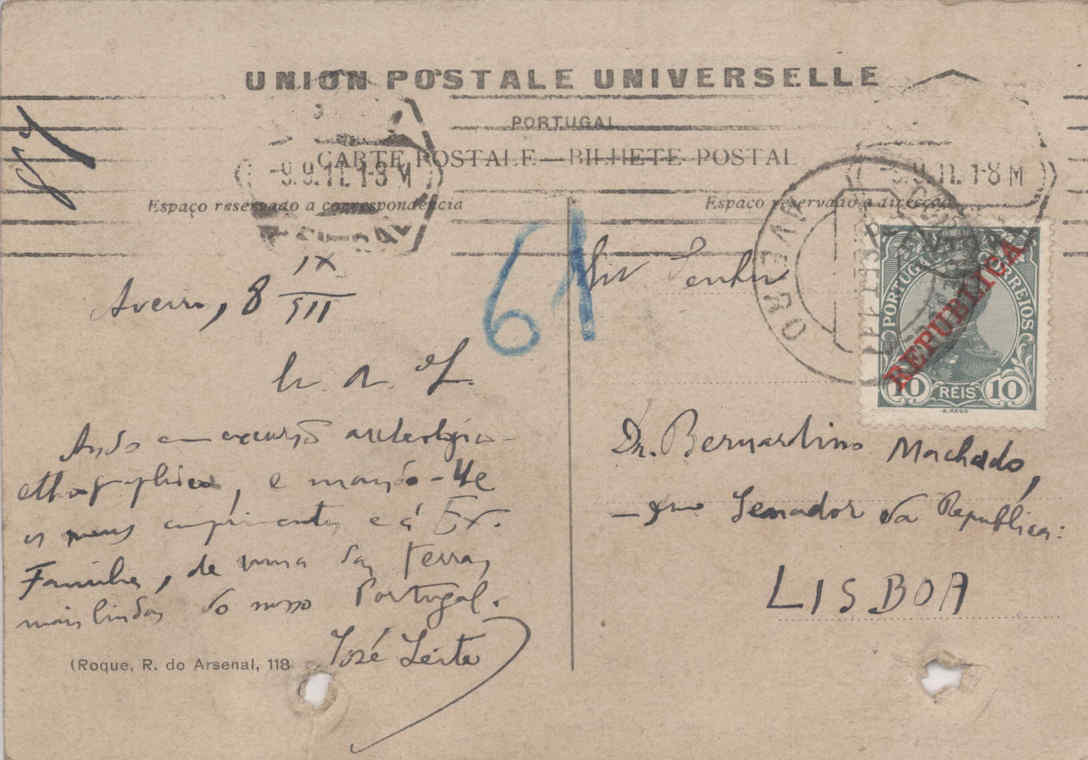 UNION POSTALE UNIVERSELLE
PORTUGAL
CARTE POSTALE—BILHETE POSTAL
-9.9.11. 1-8 M
9.9.11. 1-8 M
Espaço reservado a correspondencia
Espaço reservado a direcção
AVEIRO
PORTUGAL CORREIOS
REPUBLICA
10 REIS 10
61
Aveiro, 8 IX
Ando em excursão
e mando-lhe
os meus cumprimentos, e á Ex.
Familia, de uma das terras
mais lindas do nosso Portugal.
José Leite
(Roque, R. do Arsenal, 118
Senhor
Dr. Bernardino Machado,
Senador da Republica:
LISBOA